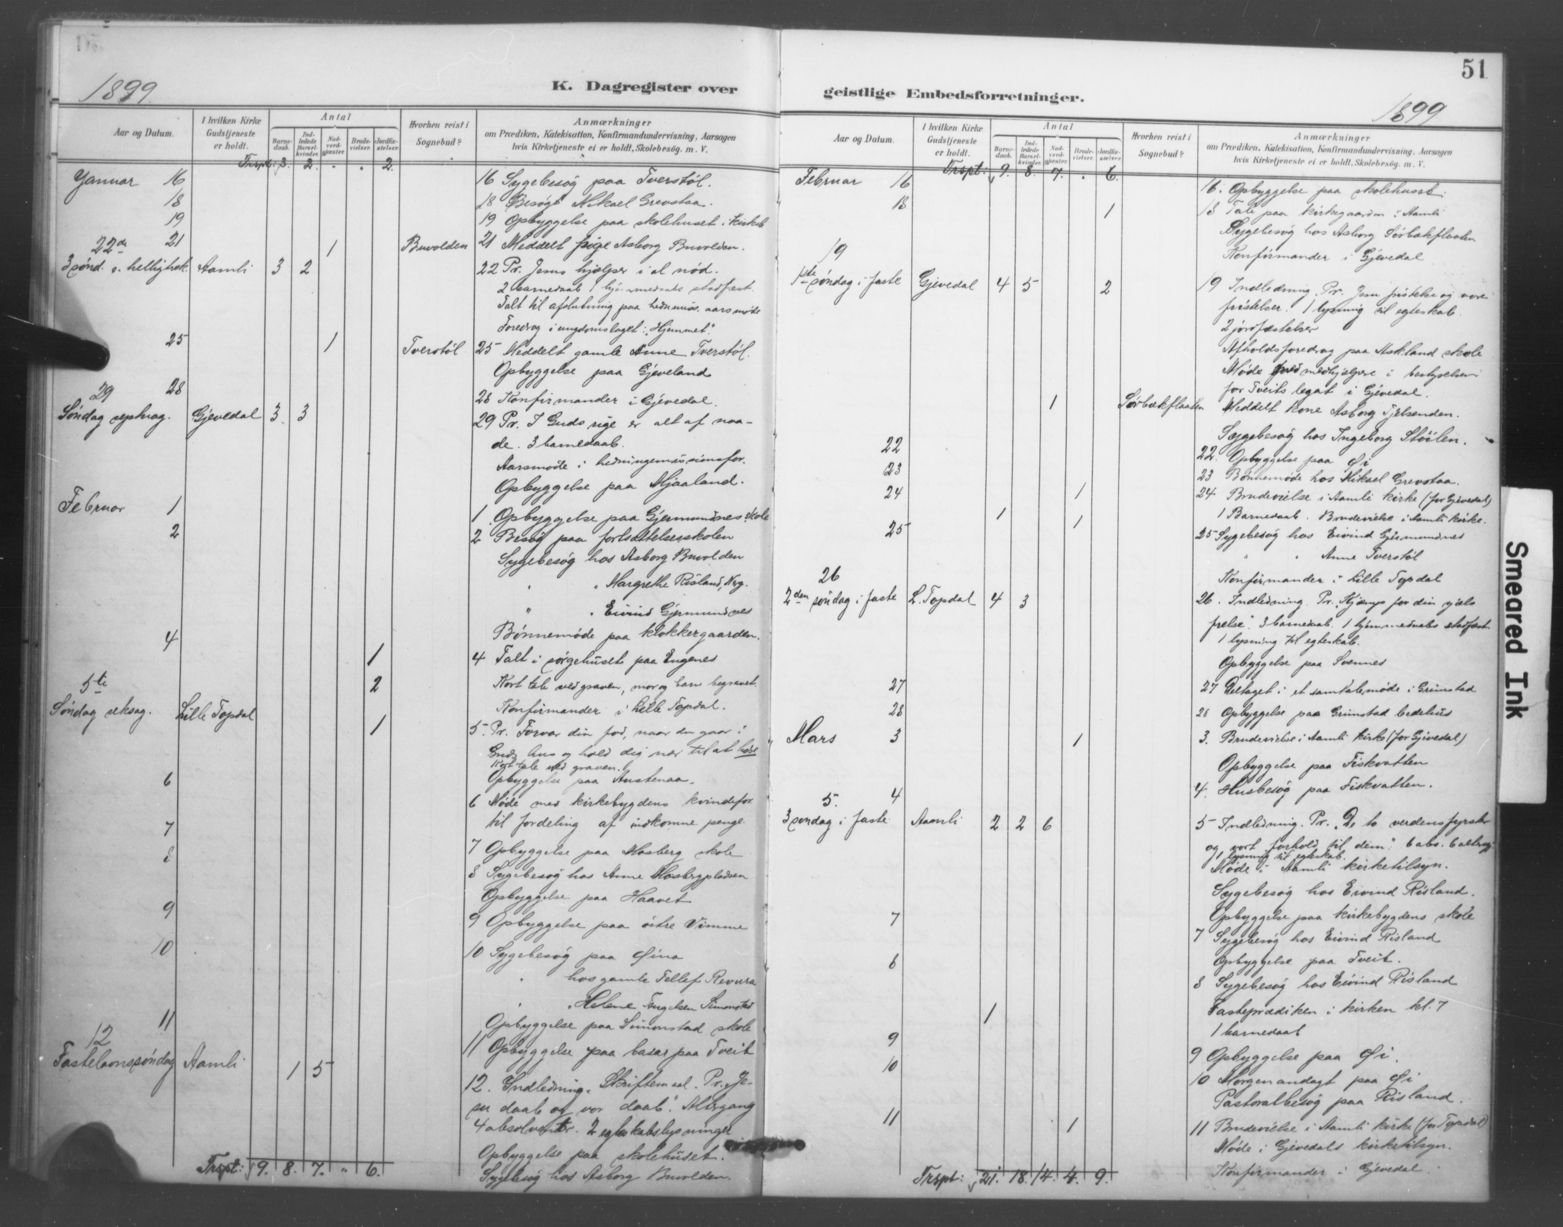 1899
K. Dagregister over
Aar og Datum.
I hvilken Kirke Gudstjeneste er holdt.
Antal
Barnedaab.
Indledede Barselkvinder.
Nadverdgjester
Brudevielser
Jordfæstelser
Hvorhen reist i Sognebud?
Anmærkninger
om Prædiken, Katekisation, Konfirmandundervisning, Aarsagen
hvis Kirketjeneste ei er holdt, Skolebesøg. m. V.
Trspt: 3. 2. " " 2.
Januar 16 16 Sygebesøg paa Tverstøl.
18 18 Besøgt Mikael Grevstaa.
19 19 Opbyggelse paa skolehuset i kirkeb
21 1 Buvolden 21 Meddelt pige Asborg Buvolden.
22de
3 sønd. e. helligtrek. Aamli 3 2 22 Pr. Jesus hjælper i al nød.
2 barnedaab 1 hjemmedøbt stadfæst.
Talt til afslutning paa hedn.miss. aarsmøde
Foredrag i ungdomslaget "Hjemmet".
25 1 Tverstøl 25 Meddelt gamle Anne Tverstøl.
Opbyggelse paa Gjeveland
28 28 Konfirmander i Gjevedal.
29
Søndag septuag. Gjevedal 3 3 29 Pr. I Guds rige er alt af naa-
de. 3 barnedaab.
Aarsmøde i hedningemissionsfor.
Opbyggelse paa Mjaaland.
Februar 1 1 Opbyggelse paa Gjermundnes skole
2 2 Besøg paa fortsættelsesskolen
Sygebesøg hos Asborg Buvolden
" " Margrethe Risland, Nrg.
" " Eivind Gjermundnes
Bønnemøde paa klokkergaarden.
4 1 4 Talt i sørgehuset paa Engenes
2 Kort tale ved graven, mor og barn begravet
Konfirmander i Lille Topdal.
5te
Søndag seksag. Lille Topdal 1 5. Pr. Forvar din fod, naar du gaar i
Guds hus og hold dig nær til at høre
Kort tale ved graven.
Opbyggelse paa Austenaa.
6 6 Møde med kirkebygdens kvindefor.
til fordeling af indkomne penge
7 7 Opbyggelse paa Mosberg skole
8 8 Sygebesøg hos Anne Mosbergpladsen
Opbyggelse paa Haavet
9 9 Opbyggelse paa øitre Vimme
10 10 Sygebesøg paa Øina
" hos gamle Tellef Revura
" " Helene Simonstad
Opbyggelse paa Simonstad skole
11 11 Opbyggelse paa basar paa Tveit
12
Fastelavnssøndag Aamli 1 5 12. Indledning. Skriftemaal. Pr. Je-
su daab og vor daab". Altergang
4 absolverte. 2 egteskabslysninger
Opbyggelse paa skolehuset.
Sygebesøg hos Asborg Buvolden.
Trspt: 9. 8. 7. " 6.
51
geistlige Embedsforretninger.
1899
Aar og Datum.
I hvilken Kirke Gudstjeneste er holdt.
Antal
Barnedaab.
Indledede Barselkvinder.
Nadverdgjester
Brudevielser
Jordfæstelser
Hvorhen reist i Sognebud?
Anmærkninger
om Prædiken, Katekisation, Konfirmandundervisning, Aarsagen
hvis Kirketjeneste ei er holdt, Skolebesøg. m. V.
Trspt: 9. 8. 7. " 6.
Februar 16 16. Opbyggelse paa skolehuset
18 1 18 Tale paa kirkegaarden i Aamli
Sygebesøg hos Asborg Sørbøkflaaten
Konfirmander i Gjevedal
19
1ste søndag i faste Gjevedal 4 5 2 19 Indledning. Pr. Jesu fristelse og vore
fristelser. 1 lysning til egteskab.
2 jordfæstelser
Afholdsforedrag paa Askland skole
Møde med medhjælpere i bestyrelsen
for Tveits legat i Gjevedal.
1 Sørbøkflaaten Meddelt kone Asborg Tjelsenden.
Sygebesøg hos Ingeborg Støilen.
22 22. Opbyggelse paa Øi
23 23 Bønnemøde hos Mikael Grevstaa.
24 1 24. Brudevielse i Aamli kirke (for Gjevedal)
1 1 1 Barnedaab. Brudevielse i Aamli kirke.
25 25 Sygebesøg hos Eivind Gjermundnes
" " Anne Tverstøl
Konfirmander i Lille Topdal
26
2den søndag i faste L. Topdal 4 3 26. Indledning. Pr. Kjæmp for din sjæls
frelse". 3 barnedaab. 1 hjemmedøbt stadfæst
1 lysning til egteskab.
Opbyggelse paa Svennes
27 27 Deltaget i et samtalemøde i Grimstad
28 28 Opbyggelse paa Grimstad bedehus
Mars 3 1 3. Brudevielse i Aamli kirke (for Gjevedal)
Opbyggelse paa Fiskvatten
4 4. Husbesøg paa Fiskvatten.
5.
3 søndag i faste Aamli 2 2 6 5 Indledning. Pr. "De to verdensfyrster
og vort forhold til dem". 6 abs. 6 alterg.
1 lysning til egteskab.
Møde i Aamli kirketilsyn.
Sygebesøg hos Eivind Risland.
Opbyggelse paa kirkebygdens skole
7 7 Sygebesøg hos Eivind Risland
Opbyggelse paa Tveit.
8 8 Sygebesøg hos Eivind Risland
Fasteprædiken i kirken kl. 7
1 1 barnedaab
9 9 Opbyggelse paa Øi.
10 10 Morgenandagt paa Øi
Pastoralbesøg paa Risland.
11 1 11 Brudevielse i Aamli kirke (for Topdal)
Møde i Gjevedals kirketilsyn.
Konfirmander i Gjevedal.
Trspt: 21. 18. 14. 4. 9.
Smeared Ink